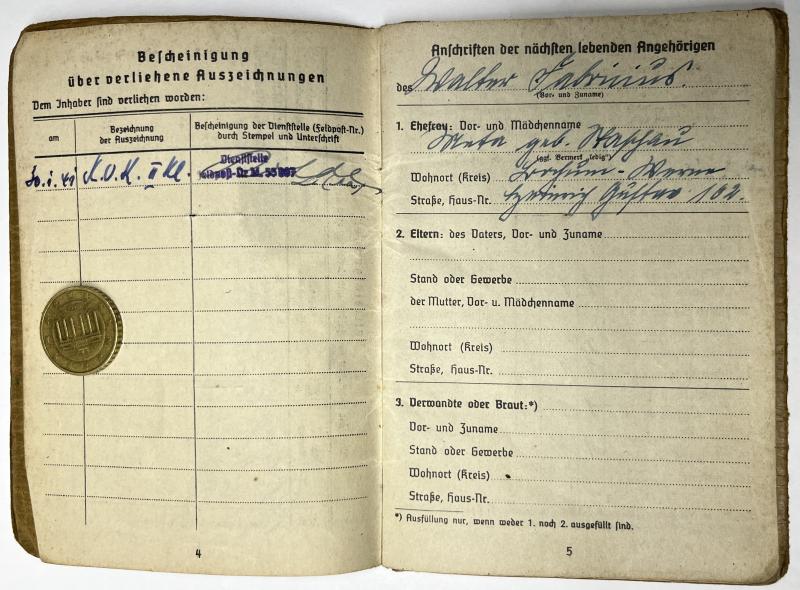 Bescheinigung
über verliehene Auszeichnungen
Dem Inhaber sind verliehen worden:
am
Bezeichnung
der Auszeichnung
Bescheinigung der Dienststelle (Feldpost-Nr.)
durch Stempel und Unterschrift
30.1.41 K.V.K. II Kl.
Dienststelle
Feldpost-Nr.
4
Anschriften der nächsten lebenden Angehörigen
des Walter Fabricius.
(Vor- und Zuname)
1. Ehefrau: Vor- und Mädchenname
Meta geb. Waschau
(ggf. Vermerk „ledig“)
Wohnort (Kreis) Bochum-Werne
Straße, Haus-Nr. Heinrich Gustav 102.
2. Eltern: des Vaters, Vor- und Zuname
Stand oder Gewerbe
der Mutter, Vor- u. Mädchenname
Wohnort (Kreis)
Straße, Haus-Nr.
3. Verwandte oder Braut:*)
Vor- und Zuname
Stand oder Gewerbe
Wohnort (Kreis)
Straße, Haus-Nr.
*) Ausfüllung nur, wenn weder 1. noch 2. ausgefüllt sind.
5